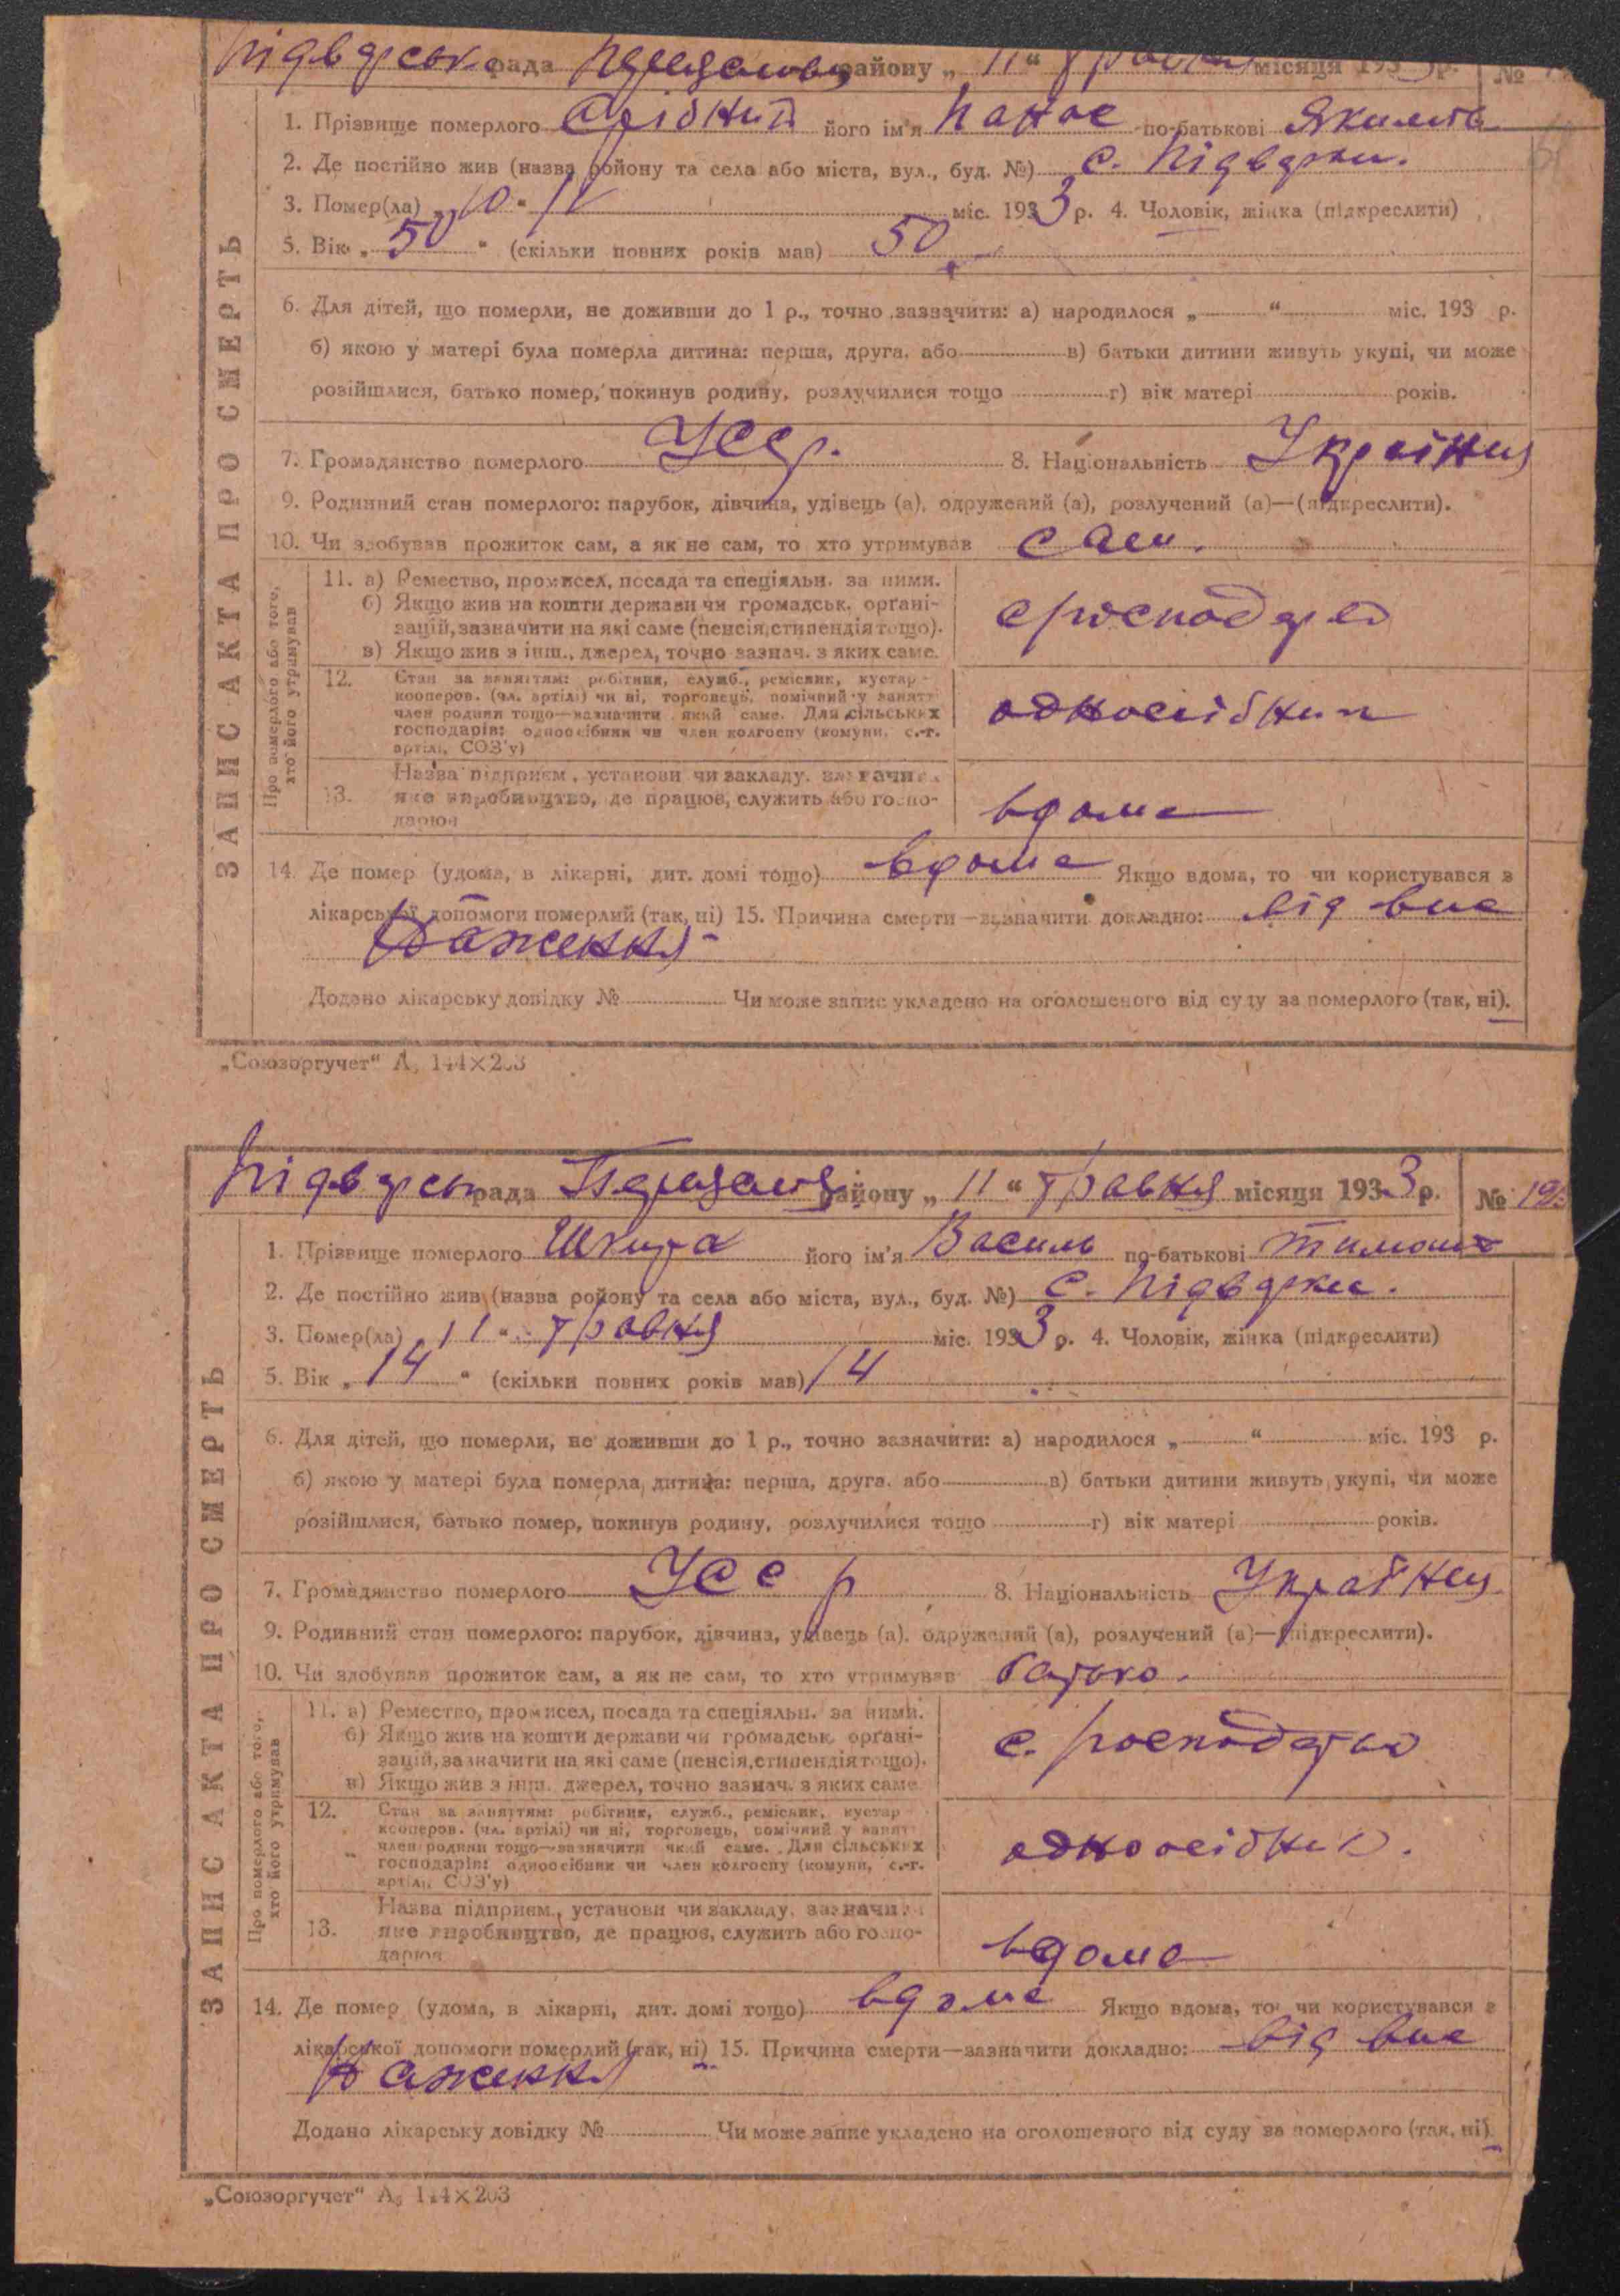 Підварськ рада району „ 11 “ травня місяця 1933 р. №
1. Прізвище померлого Срібний його ім'я Панас по-батькові Якимов
2. Де постійно жив (назва ройону та села або міста, вул., буд. №) с. Підварки.
3. Помер(ла) „ 10 “ IV міс. 193 3 р. 4. Чоловік, жінка (підкреслити)
5. Вік „ 50 “ (скільки повних років мав) 50
6. Для дітей, що померли, не доживши до 1 р., точно зазначити: а) народилося „ “ міс. 193 р.
б) якою у матері була померла дитина: перша, друга, або в) батьки дитини живуть укупі, чи може
розійшлися, батько помер, покинув родину, розлучилися тощо г) вік матері років.
7. Громадянство померлого Усср. 8. Національність
9. Родинний стан померлого: парубок, дівчина, удівець (а), одружений (а), розлучений (а)—(підкреслити).
10. Чи здобував прожиток сам, а як не сам, то хто утримував сам.
ЗАПИС АКТА ПРО СМЕРТЬ
Про померлого або того, хто його утримував
11. а) Ремество, промисел, посада та спеціяльн. за ними.
б) Якщо жив на кошти держави чи громадськ. орґані-
зацій, зазначити на які саме (пенсія, стипендія тощо).
в) Якщо жив з інш., джерел, точно зазнач. з яких саме.
12. Стан за заняттям: робітник, служб., ремісник, кустар-
кооперов. (чл. артілі) чи ні, торговець, помічний у занятт
член родини тощо—зазначити який саме. Для сільських
господарів: одноосібник чи член колгоспу (комуни, с.-г.
артілі, СОЗ'у)
одноосібник
13. Назва підприєм., установи чи закладу, зазначив
яке виробництво, де працює, служить або госпо-
дарює
вдома
14. Де помер (удома, в лікарні, дит. домі тощо) вдома Якщо вдома, то чи користувався з
лікарської допомоги померлий (так, ні) 15. Причина смерти—зазначити докладно: від вис
наження
Додано лікарську довідку № Чи може запис укладено на оголошеного від суду за померлого (так, ні).
„Союзоргучет“ А5 144×203
Підварськ рада району „ 11 “ травня місяця 193 3 р. №
1. Прізвище померлого Шкура його ім'я Василь по-батькові Тимош
2. Де постійно жив (назва ройону та села або міста, вул., буд. №) с. Підварки.
3. Помер(ла) „ 11 “ травня міс. 193 3 р. 4. Чоловік, жінка (підкреслити)
5. Вік „ 14 “ (скільки повних років мав) 14
6. Для дітей, що померли, не доживши до 1 р., точно зазначити: а) народилося „ “ міс. 193 р.
б) якою у матері була померла дитина: перша, друга, або в) батьки дитини живуть укупі, чи може
розійшлися, батько помер, покинув родину, розлучилися тощо г) вік матері років.
7. Громадянство померлого Усср 8. Національність
9. Родинний стан померлого: парубок, дівчина, удівець (а), одружений (а), розлучений (а)—(підкреслити).
10. Чи здобував прожиток сам, а як не сам, то хто утримував батько.
ЗАПИС АКТА ПРО СМЕРТЬ
Про померлого або того, хто його утримував
11. а) Ремество, промисел, посада та спеціяльн. за ними.
б) Якщо жив на кошти держави чи громадськ. орґані-
зацій, зазначити на які саме (пенсія, стипендія тощо).
в) Якщо жив з інш. джерел, точно зазнач. з яких саме.
12. Стан за заняттям: робітник, служб., ремісник, кустар
кооперов. (чл. артілі) чи ні, торговець, помічний у занятт
член родини тощо—зазначити який саме. Для сільських
господарів: одноосібник чи член колгоспу (комуни, с.-г.
артілі, СОЗ'у)
одноосібник.
13. Назва підприєм., установи чи закладу, зазначив
яке виробництво, де працює, служить або госпо-
дарює
вдома
14. Де помер (удома, в лікарні, дит. домі тощо) вдома Якщо вдома, то чи користувався з
лікарської допомоги померлий (так, ні) 15. Причина смерти—зазначити докладно: від вис
наження
Додано лікарську довідку № Чи може запис укладено на оголошеного від суду за померлого (так, ні).
„Союзоргучет“ А5 144×203